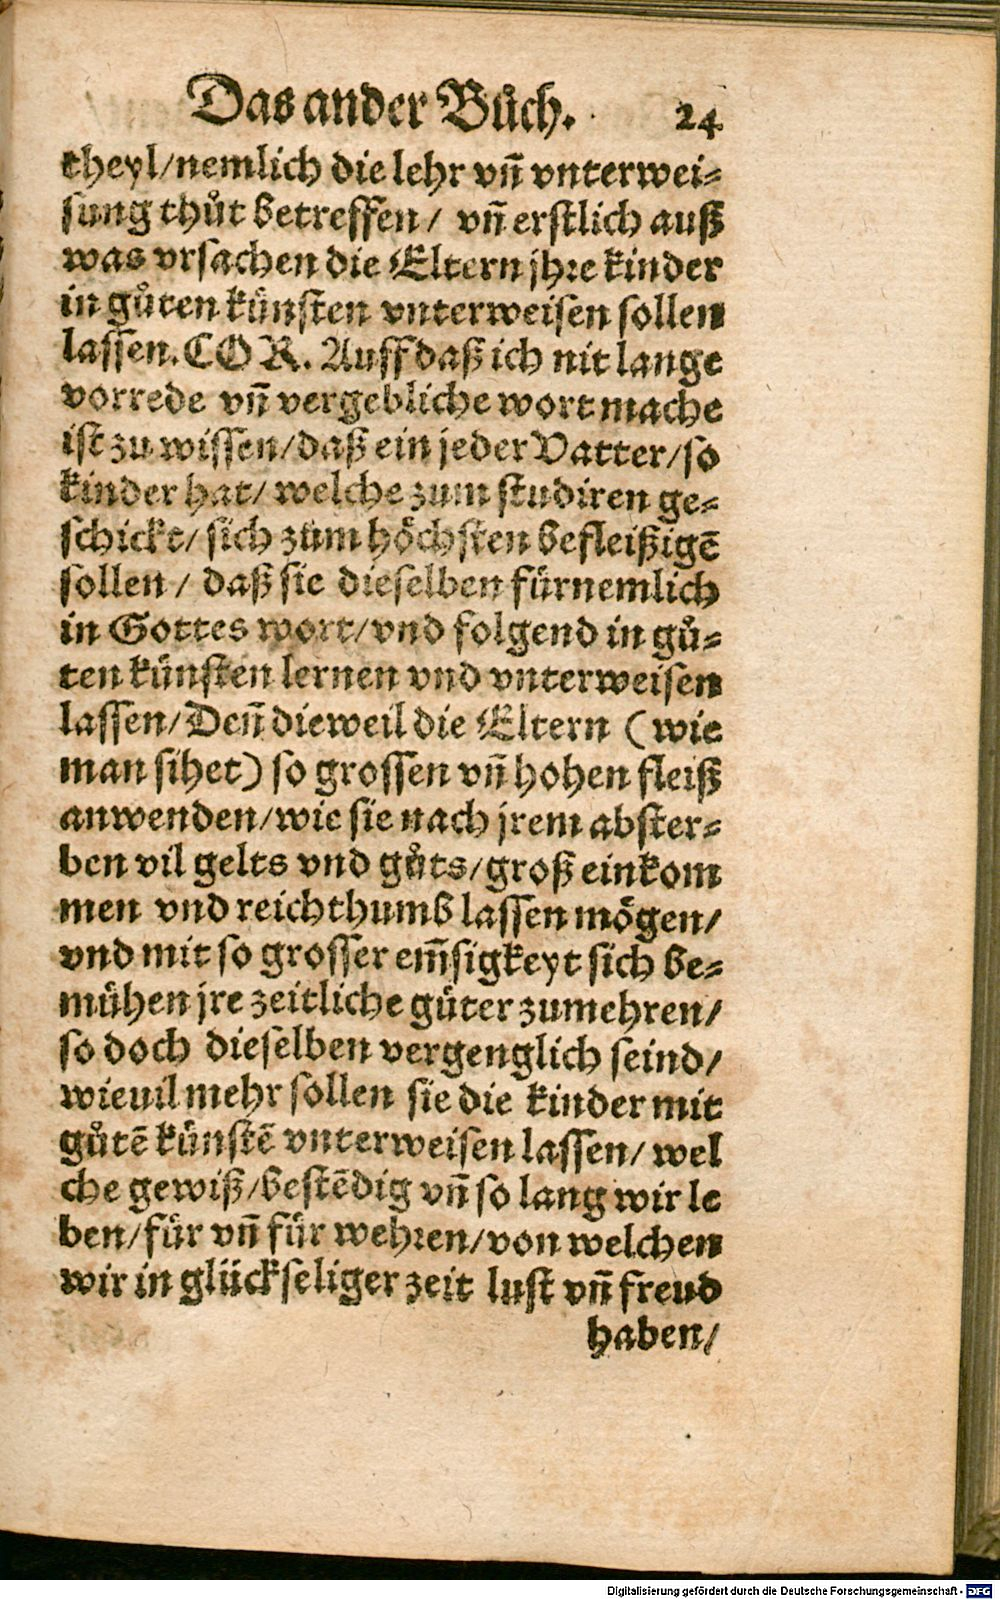 Das ander Bůch. 24
theyl/nemlich die lehr vñ vnterwei-
sung thůt betreffen/ vñ erstlich auß
was vrsachen die Eltern jhre kinder
in gůten künsten vnterweisen sollen
lassen. COR. Auff daß ich nit lange
vorrede vñ vergebliche wort mache
ist zu wissen/daß ein jeder Vatter/so
kinder hat/ welche zum studiren ge-
schickt/ sich zům höchsten befleißigẽ
sollen/ daß sie dieselben fürnemlich
in Gottes wort/vnd folgend in gů-
ten künsten lernen vnd vnterweisen
lassen/Deñ dieweil die Eltern (wie
man sihet) so grossen vñ hohen fleiß
anwenden/wie sie nach jrem abster-
ben vil gelts vnd gůts/groß einkom
men vnd reichthumb lassen mögen/
vnd mit so grosser em̃sigkeyt sich be-
mühen jre zeitliche güter zumehren/
so doch dieselben vergenglich seind/
wieuil mehr sollen sie die kinder mit
gůtẽ künstẽ vnterweisen lassen/ wel
che gewiß/bestẽdig vñ so lang wir le
ben/für vñ für wehren/von welchen
wir in glückseliger zeit lust vñ freud
haben/
Digitalisierung gefördert durch die Deutsche Forschungsgemeinschaft - DFG